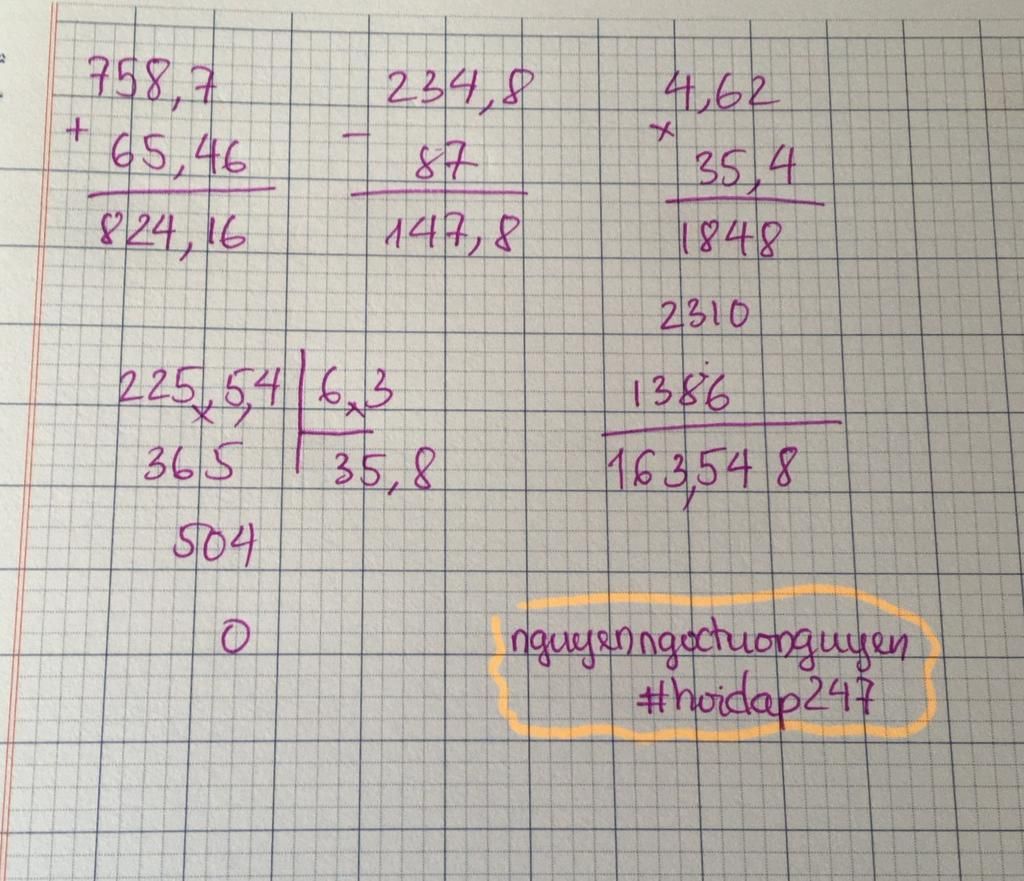 758,7
+
65,46
824,16
234,8
-
87
147,8
4,62
×
35,4
1848
2310
1386
163,548
225,5,4 | 6,3
365 35,8
504
0
nguyenngoctuonguyen
#hoidap247